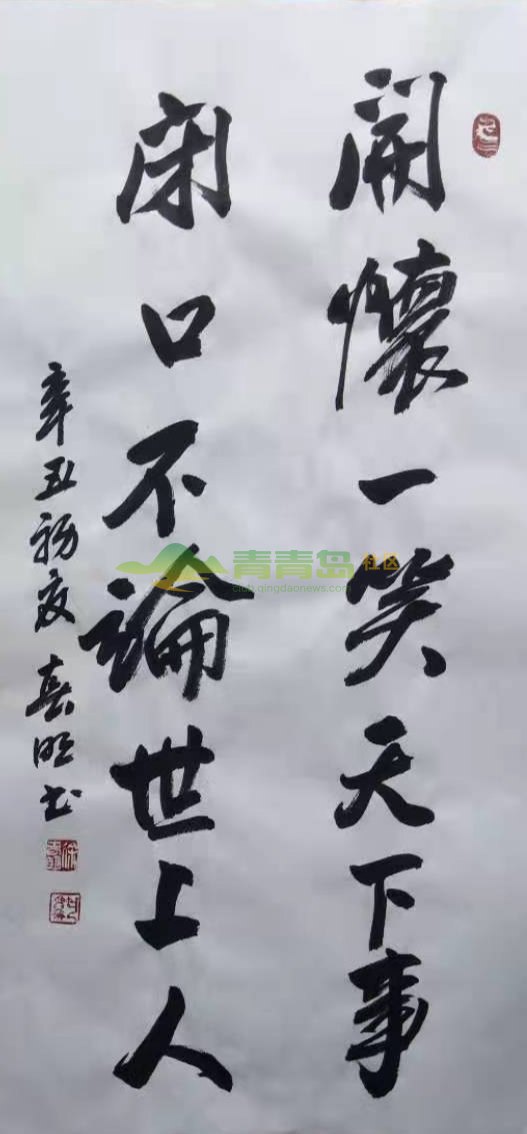 開懷一笑天下事
閉口不論世上人
辛丑初夏 春明书
青青岛社区
club.qingdaonews.com